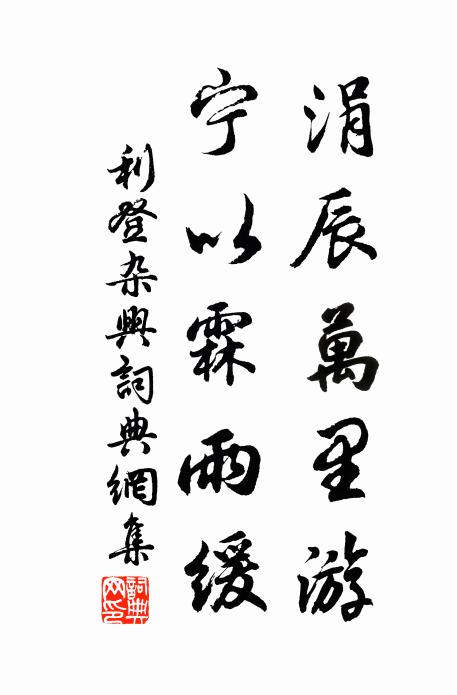 涓辰萬里游
宁以霖雨緩
利登杂興詞典網集
詞典網印